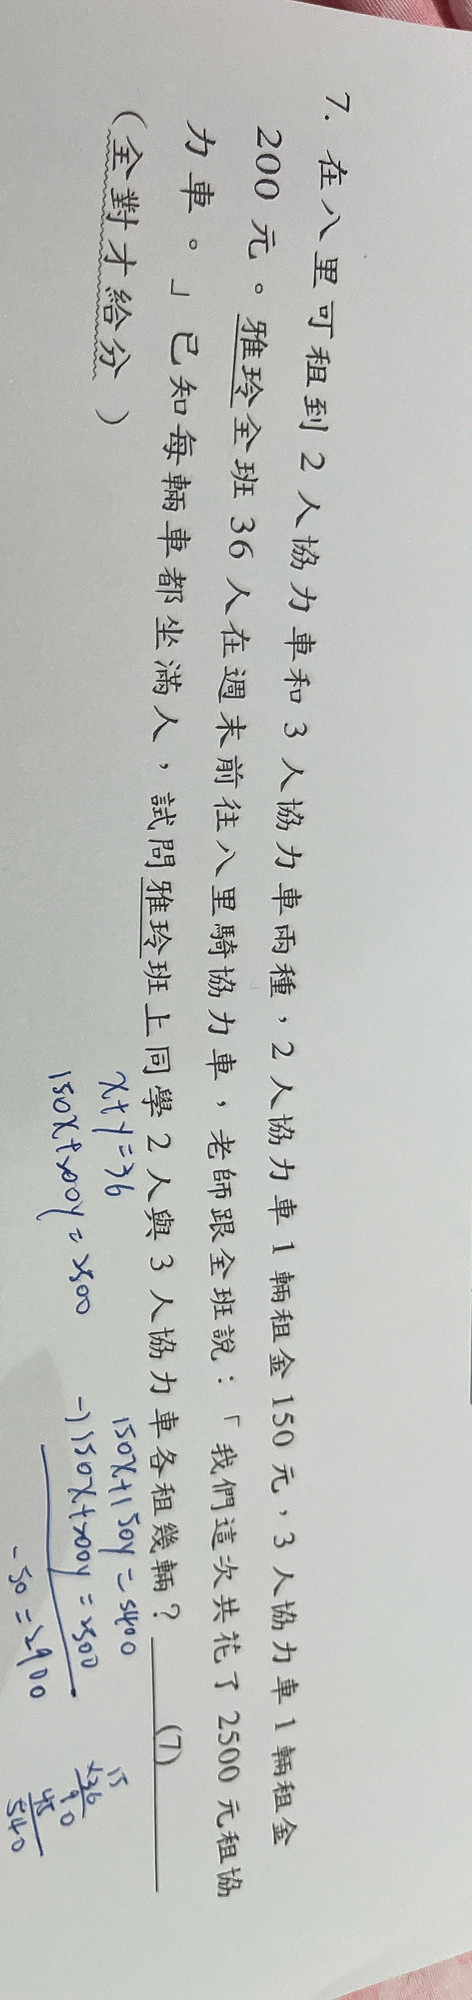 7. 在八里可租到 2 人協力車和 3 人協力車兩種，2 人協力車 1 輛租金 150 元，3 人協力車 1 輛租金
200 元。雅玲全班 36 人在週末前往八里騎協力車，老師跟全班說：「我們這次共花了 2500 元租協
力車。」已知每輛車都坐滿人，試問雅玲班上同學 2 人與 3 人協力車各租幾輛？ (7)
(全對才給分)
x+y=36
150x+200y=2500
150x+150y=5400
-)150x+200y=2500
-50=2900
15
×36
90
45
540